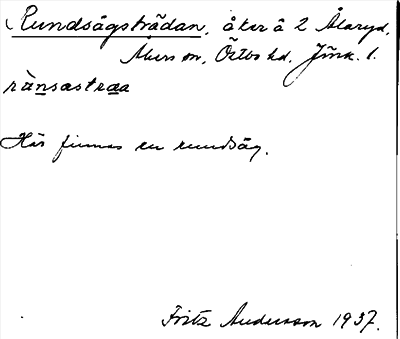 Rundsågsträdan, åker å 2 Ålaryd,
Åkers sn, Östbo hd, Jönk. l.
rànsastraa
Här finnes en rundsåg.
Fritz Andersson 1937.